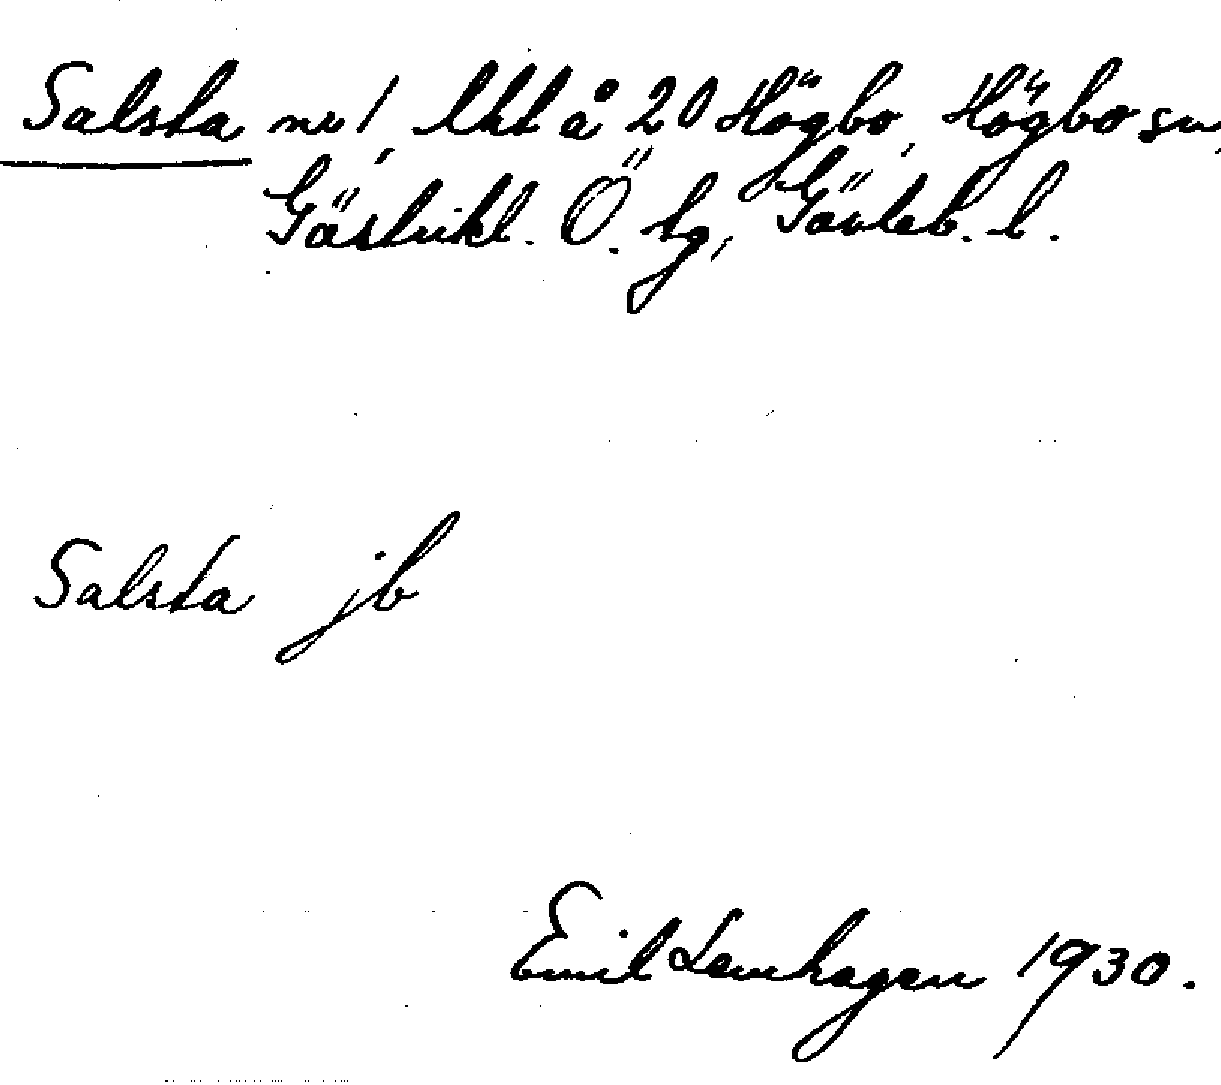 Salsta nr 1, lht å 20 Högbo, Högbo sn,
Gästrikl. Ö. tg, Gävleb. l.
Salsta jb
Emil Lemhagen 1930.